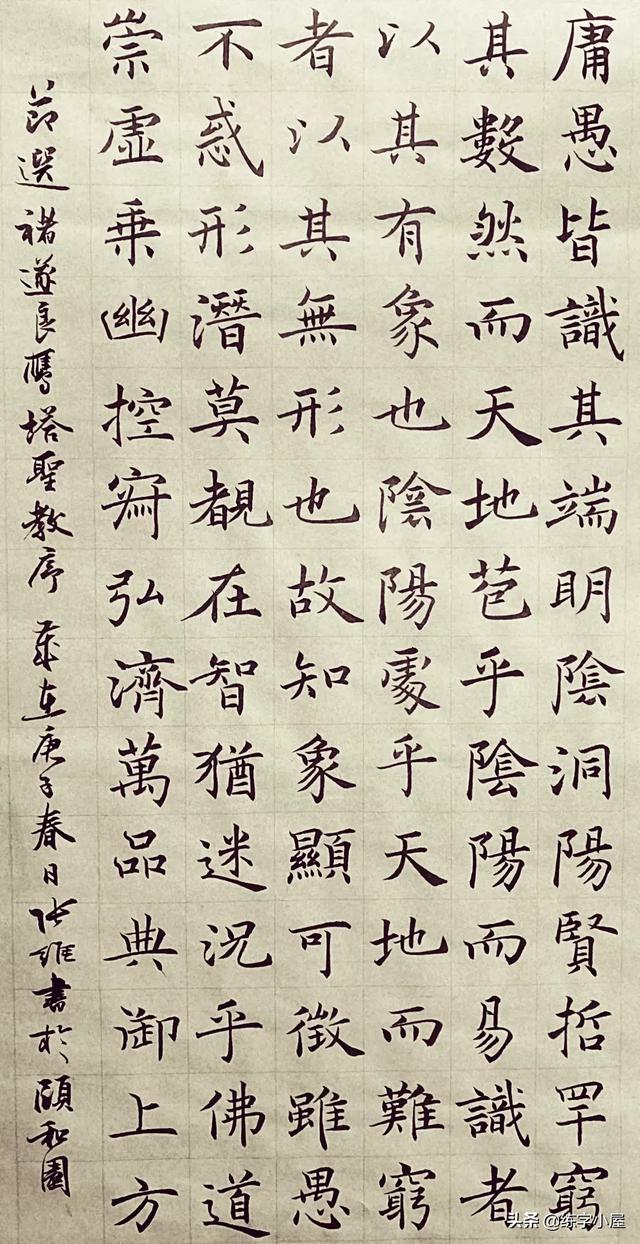 庸愚皆識其端明陰洞陽賢哲罕窮
其數然而天地苞乎陰陽而易識者
以其有象也陰陽處乎天地而難窮
者以其無形也故知象顯可徵雖愚
不惑形潛莫覩在智猶迷況乎佛道
崇虛乗幽控寂弘濟萬品典御上方
節選褚遂良鴈塔聖教序歲在庚子春日張維書於頤和園
头条 @练字小屋